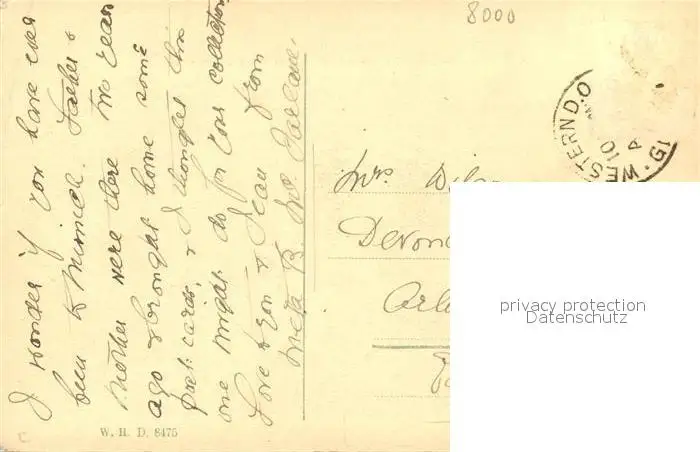 I wonder if you have ever
been to Munich. Father &
Mother were there two years
ago & brought home some
post cards, & I thought this
one might do for your collection
Love to you & Jean from
Meta B. Mc Farlane.
8000
WESTERN D.O
10
A
GL
Mrs
Devon
Arl
W. H. D. 8475
privacy protection
Datenschutz